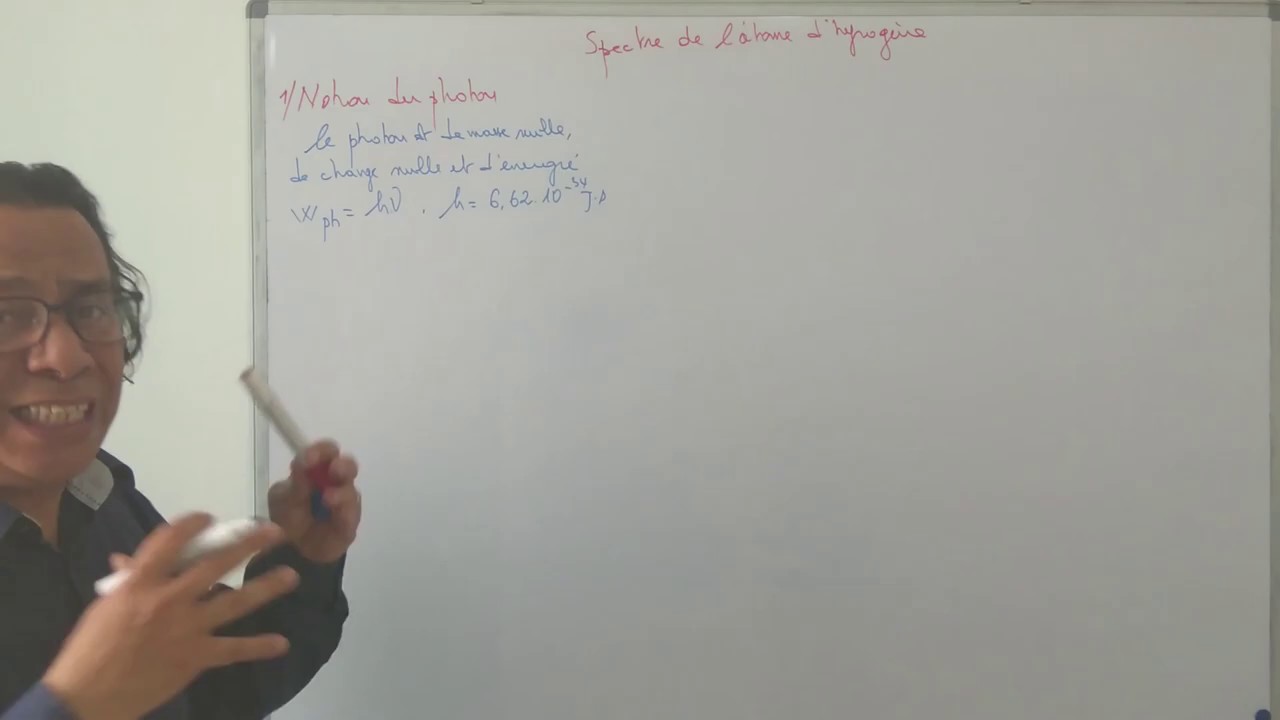 Spectre de l'atome d'hyrogène
1/ Notion du photon
le photon est de masse nulle,
de charge nulle et d'énergie
W_ph = hν . h = 6,62.10^-34 J.s